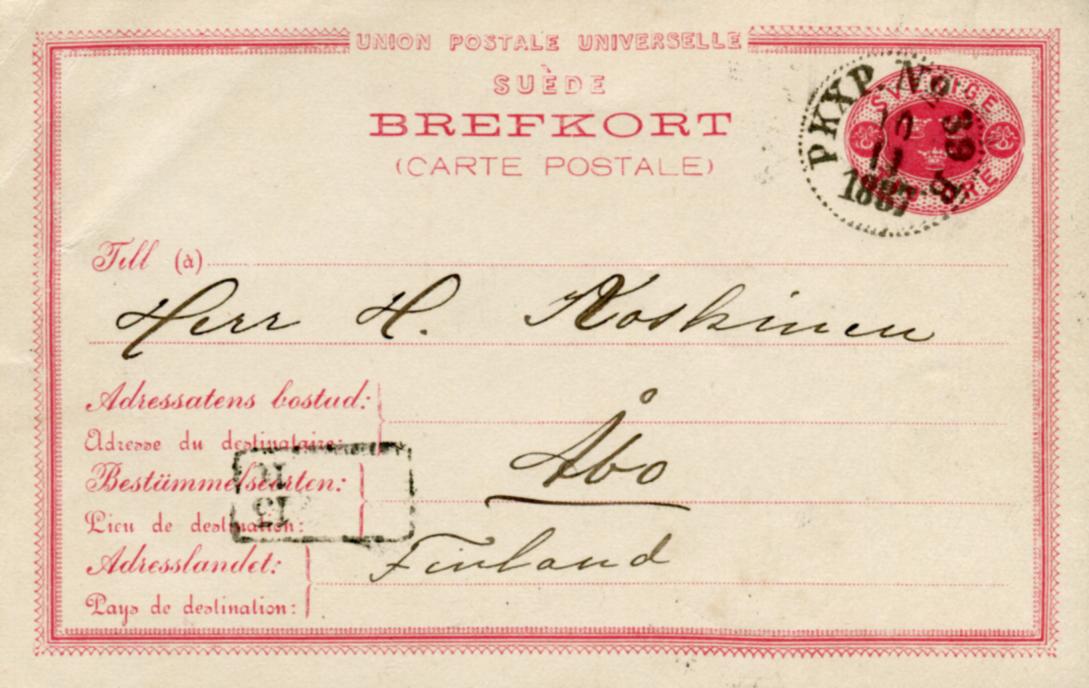 UNION POSTALE UNIVERSELLE
SUÈDE
BREFKORT
(CARTE POSTALE)
PKXP. No 39 B.
10
11
1887
SVERIGE
ÖRE
Till (à)
Herr H. Koskinen
Adressatens bostad:
Adresse du destinataire:
Åbo
Bestämmelseorten:
Lieu de destination:
Finland
Adresslandet:
Pays de destination: